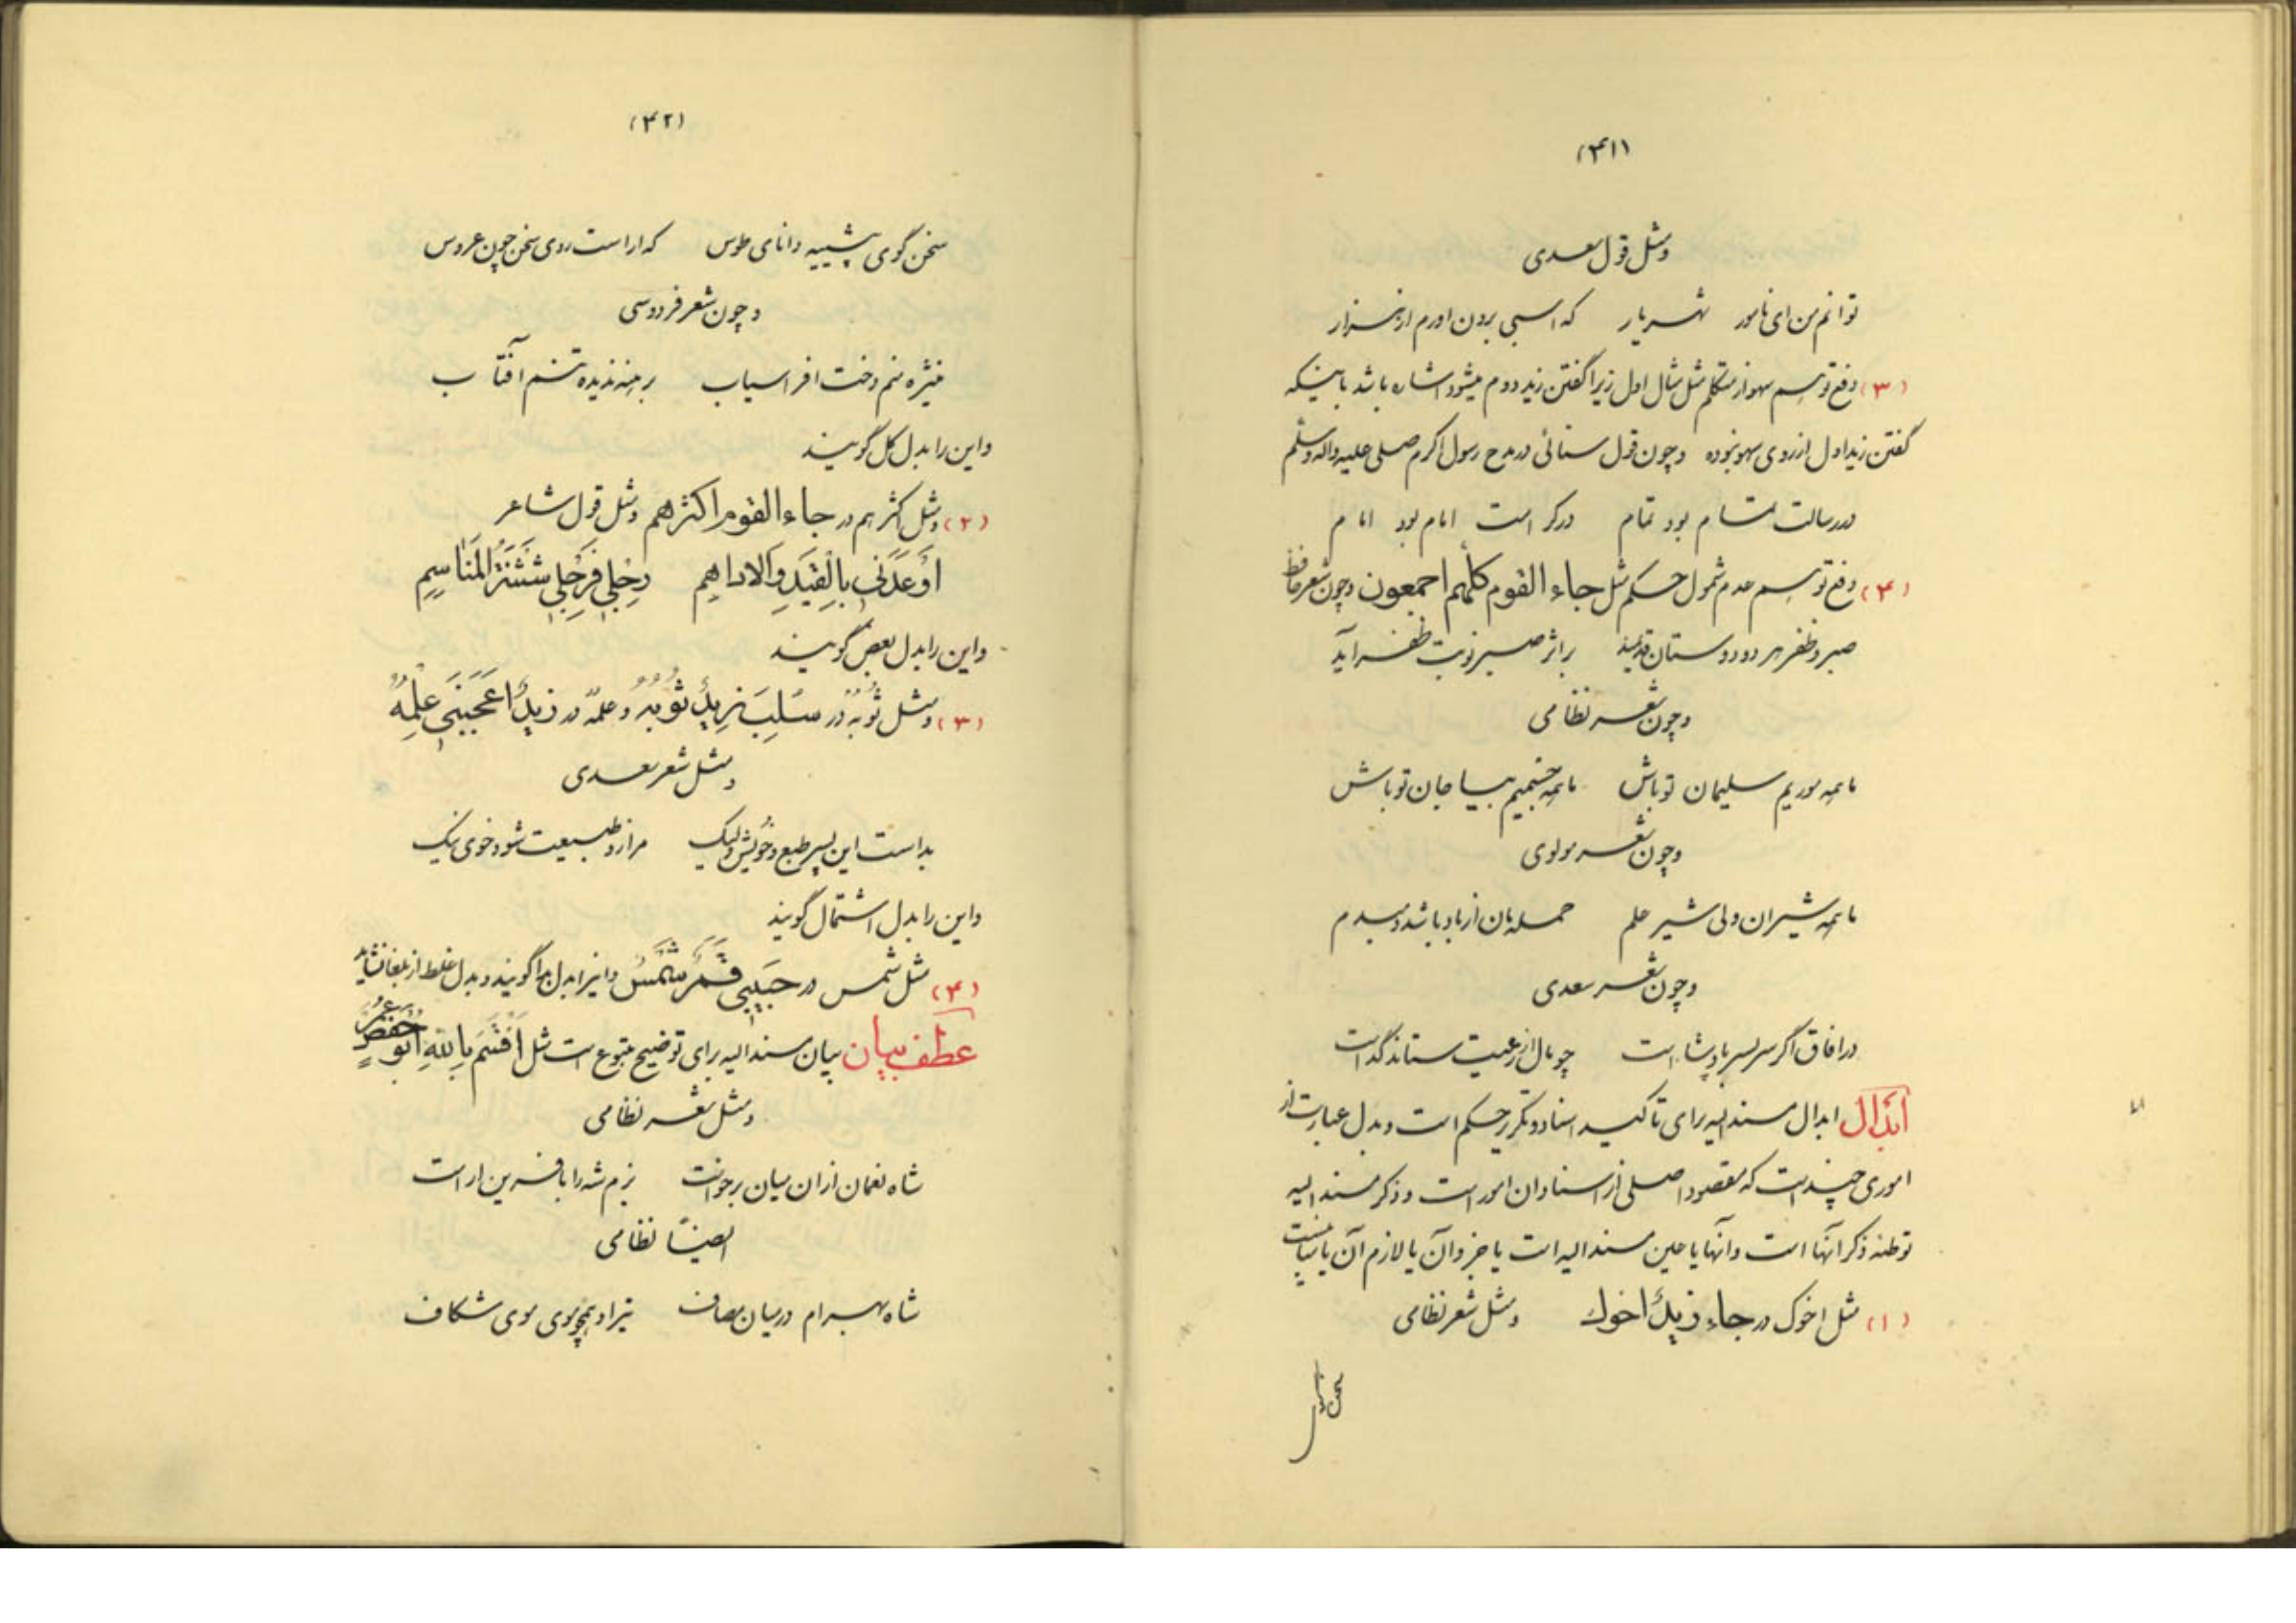 (۴۱)
ومثل قول سعدی
توانم من ای نامور شهریار که اسبی برون اورم از هزار
(۳) دفع توهم سهو از متکلم مثل مثال اول زیرا گفتن زید دوم میشود اشاره باشد باینکه
گفتن زید اول از روی سهو نبوده وچون قول سنائی در مدح رسول اکرم صلی علیه واله وسلم
در رسالت تمام بود تمام در کرامت امام بود امام
(۴) دفع توهم عدم شمول حکم مثل جاء القوم کلّهم اجمعون وچون شعر حافظ
صبر و ظفر هر دو دوستان قدیمند بر اثر صبر نوبت ظفر آید
وچون شعر نظامی
ما همه موریم سلیمان تو باش ما همه جسمیم بیا جان تو باش
وچون شعر مولوی
ما همه شیران ولی شیر علم حمله مان از باد باشد دمبدم
وچون شعر سعدی
در افاق اگر سر بسر پادشا است چو مال از رعیت ستاند گداست
ابدال ابدال مسند الیه برای تاکید اسناد و تکریر حکم است و بدل عبارت از
اموری چند است که مقصود اصلی از اسناد ان امور است و ذکر مسند الیه
توطئه ذکر آنها است وانها یا عین مسند الیه است یا جزو آن یا لازم آن یا مباینست
(۱) مثل اخوک در جاء زیدٌ اخوك ومثل شعر نظامی
(۴۲)
سخن گوی پیشینه دانای طوس که اراست روی سخن چون عروس
وچون شعر فردوسی
منیژه منم دخت افراسیاب برهنه ندیده تنم آفتاب
واین را بدل کل گویند
(۲) ومثل اکثرهم در جاء القوم اکثرهم ومثل قول شاعر
اَوْعَدَنی بِالْقَیدِ وَالاداهِمِ رِجْلی فَرِجْلی شَثْنَةُ الْمَناسِمِ
واین را بدل بعض گویند
(۳) ومثل ثوبُهُ در سُلِبَ زیدٌ ثوبُهُ وعلمُهُ در زیدٌ اعجَبَنی عِلْمُهُ
ومثل شعر سعدی
بد است این پسر طبع و خویش ولیک مرا زو طبیعت شود خوی نیک
واین را بدل اشتمال گویند
(۴) مثل شمس در حَبیبی قَمَرٌ شَمْسٌ واین را بدل بدا گویند و بدل غلط از بلغا نشاید
عطف بیان بیان مسند الیه برای توضیح متبوع است مثل اَقْسَمَ بِاللهِ اَبُو حَفْصٍ عُمَرُ
ومثل شعر نظامی
شاه نعمان از ان میان برخواست بزم شه را بافرین اراست
ایضاً نظامی
شاه بهرام در میان مصاف تیز او همچو موی موی شکاف